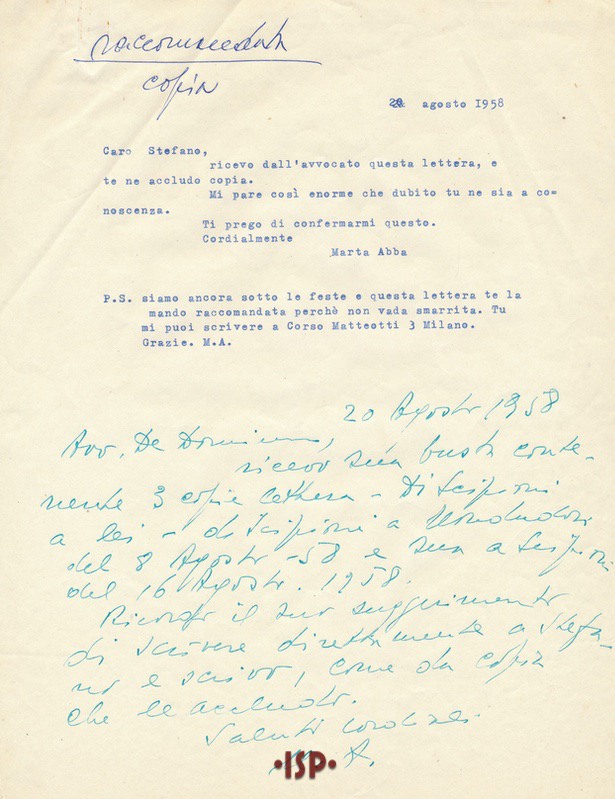 raccomandata
copia
20 agosto 1958
Caro Stefano,
ricevo dall'avvocato questa lettera, e
te ne accludo copia.
Mi pare così enorme che dubito tu ne sia a co=
noscenza.
Ti prego di confermarmi questo.
Cordialmente
Marta Abba
P.S. siamo ancora sotto le feste e questa lettera te la
mando raccomandata perchè non vada smarrita. Tu
mi puoi scrivere a Corso Matteotti 3 Milano.
Grazie. M.A.
20 Agosto 1958
Avv. De Dominicis,
ricevo sua busta conte-
nente 3 copie lettera - Di Scipioni
a lei - di Scipioni a Mondadori
del 8 Agosto -58 e sua a Scipioni
del 16 Agosto. 1958.
il suo suggerimento
di scrivere direttamente a Stefa-
no e scrivo, come da copia
che le accludo.
Saluti cordiali.
M. A.
•ISP•